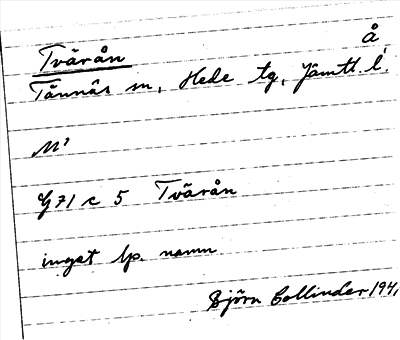 Å
Tvärån
Tännäs sn, Hede tg, Jämtl. l.
M¹
G 71 c 5 Tvärån
inget lp. namn
Björn Collinder 1941